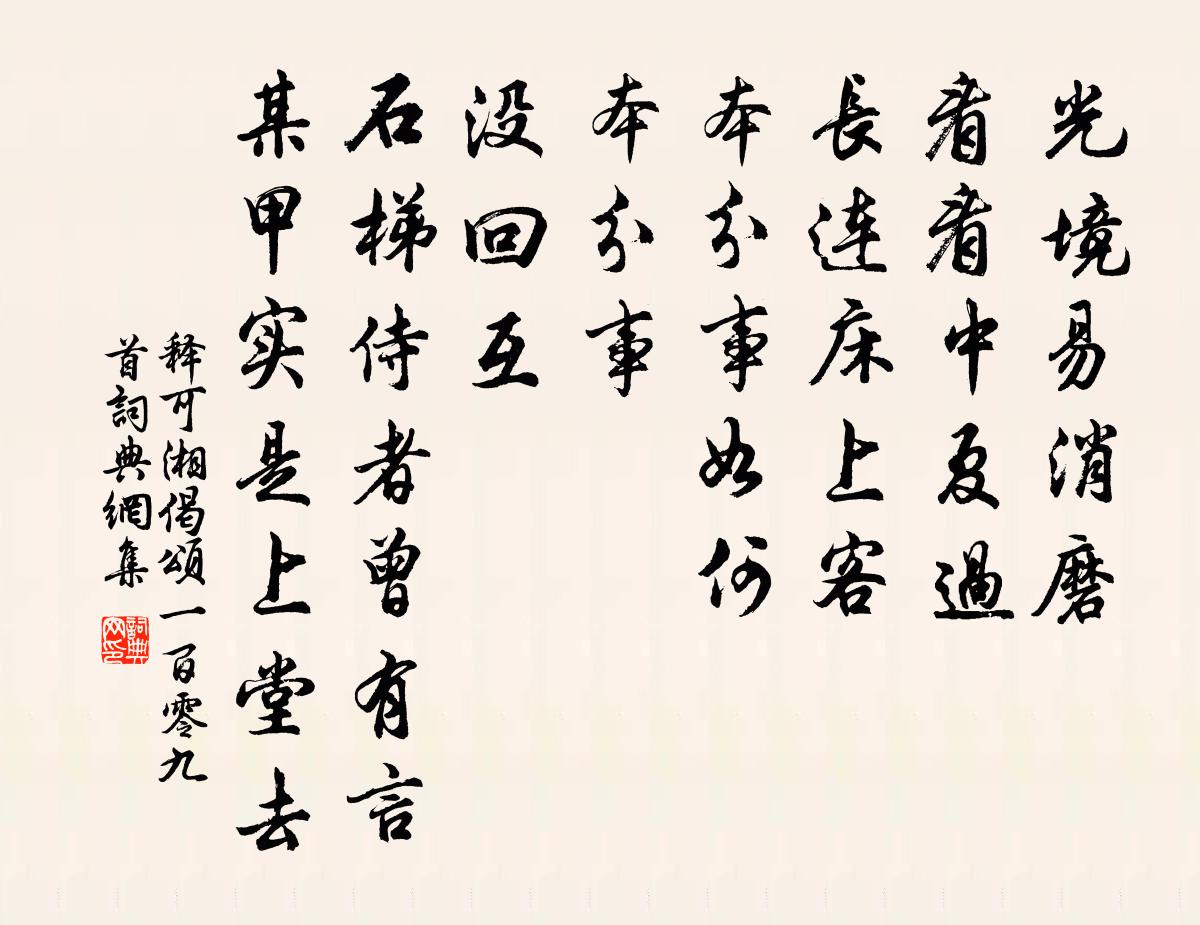 光境易消磨
看看中夏過
長連床上客
本分事如何
本分事
没回互
石梯侍者曾有言
某甲实是上堂去
释可湘偈頌一百零九
首詞典網集
詞典网印